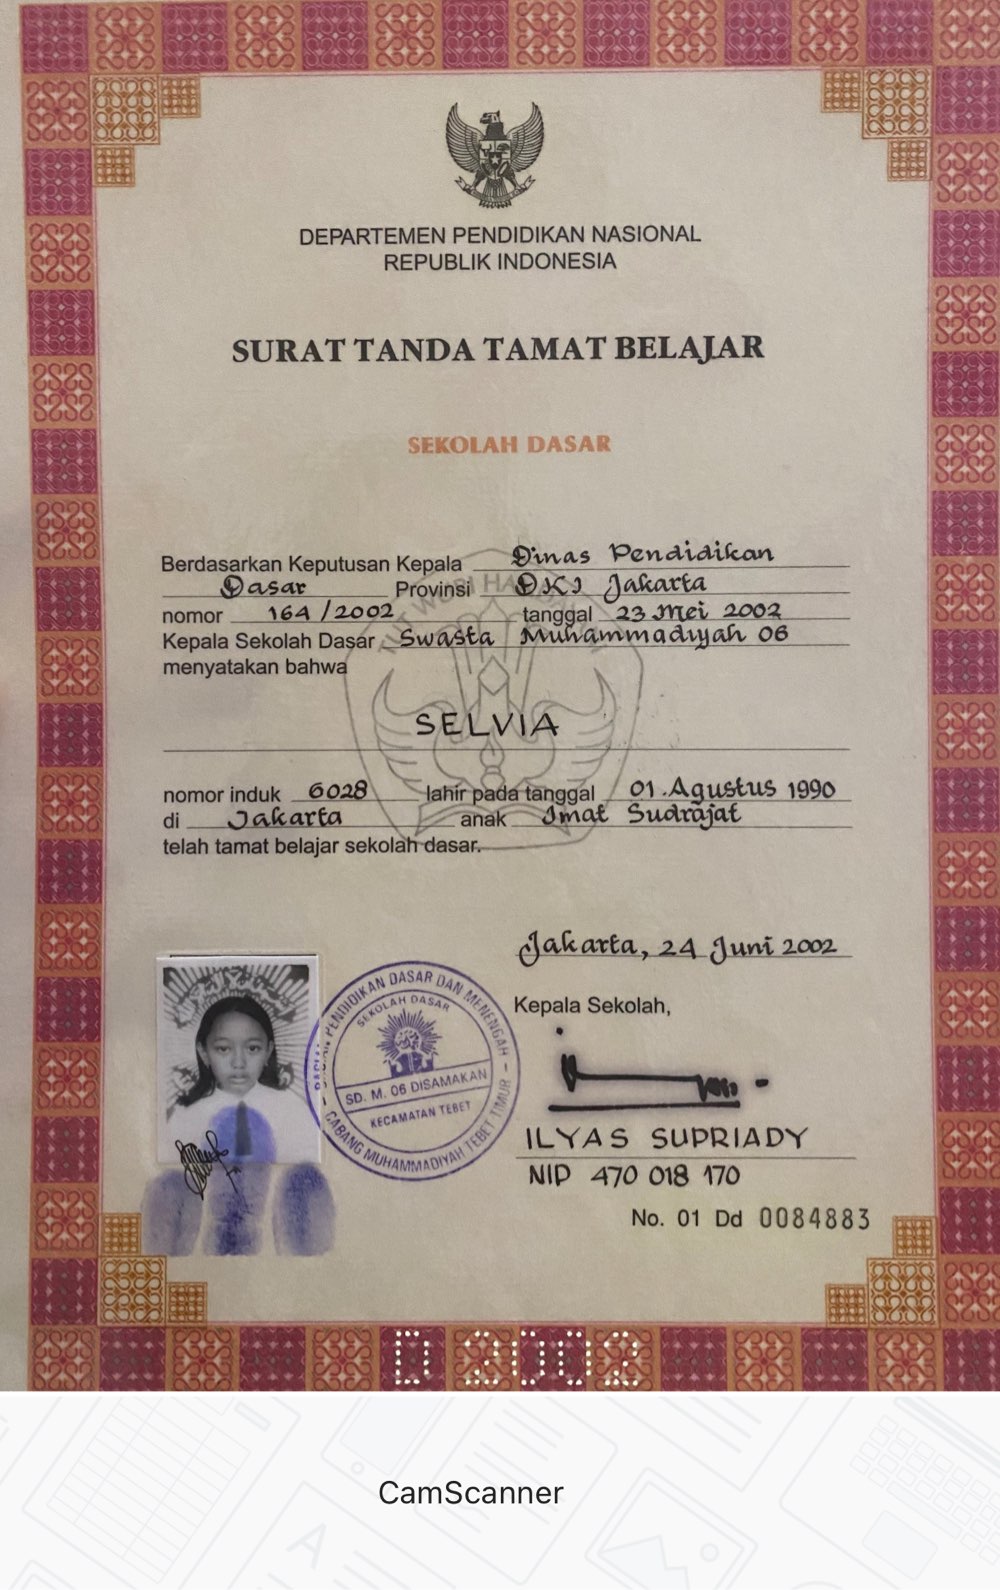 DEPARTEMEN PENDIDIKAN NASIONAL
REPUBLIK INDONESIA
SURAT TANDA TAMAT BELAJAR
SEKOLAH DASAR
Berdasarkan Keputusan Kepala Dinas Pendidikan
Dasar Provinsi DKI Jakarta
nomor 164/2002 tanggal 23 Mei 2002
Kepala Sekolah Dasar Swasta Muhammadiyah 06
menyatakan bahwa
SELVIA
nomor induk 6028 lahir pada tanggal 01 Agustus 1990
di Jakarta anak Imat Sudrajat
telah tamat belajar sekolah dasar.
Jakarta, 24 Juni 2002
Kepala Sekolah,
PENDIDIKAN DASAR DAN MENENGAH
SEKOLAH DASAR
SD. M. 06 DISAMAKAN
KECAMATAN TEBET
CABANG MUHAMMADIYAH TEBET TIMUR
ILYAS SUPRIADY
NIP 470 018 170
No. 01 Dd 0084883
D 2002
CamScanner